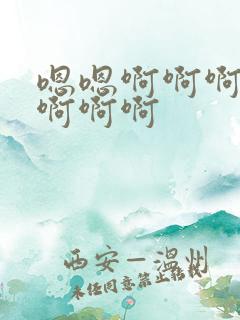 嗯嗯啊啊啊
啊啊啊
西安—温州
未经同意禁止转载